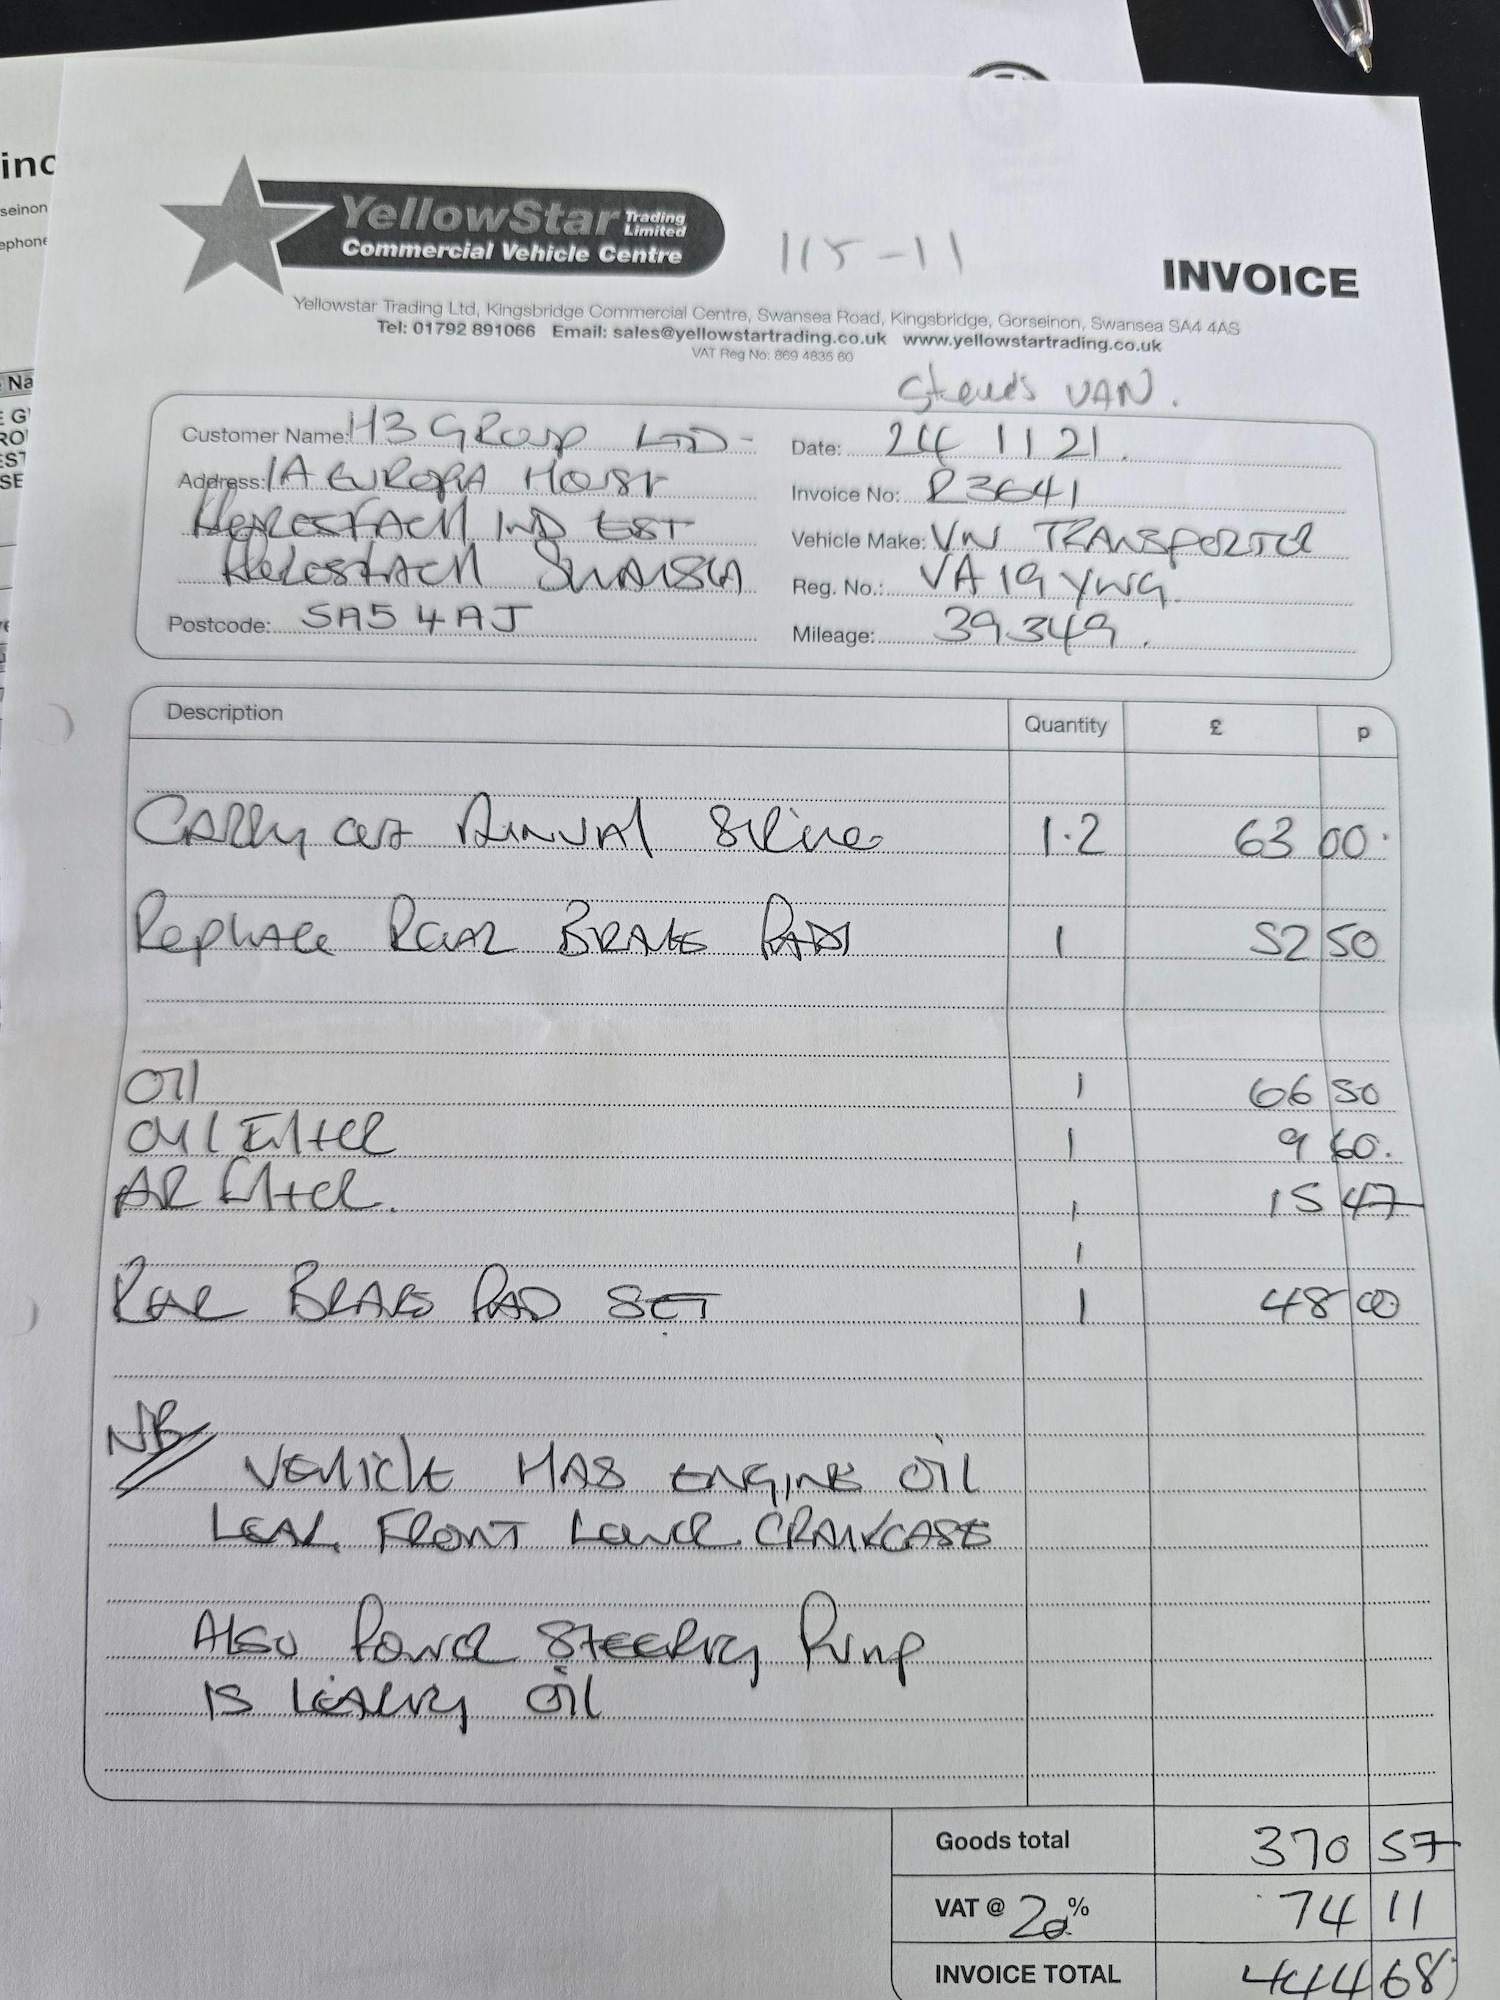 inc
seinon
ephone
Na
E G
RO
EST
SE
YellowStar Trading Limited
Commercial Vehicle Centre
115-11
INVOICE
Yellowstar Trading Ltd, Kingsbridge Commercial Centre, Swansea Road, Kingsbridge, Gorseinon, Swansea SA4 4AS
Tel: 01792 891066 Email: sales@yellowstartrading.co.uk www.yellowstartrading.co.uk
VAT Reg No: 869 4835 60
VAN.
Customer Name: H3 GROUP LTD- Date: 24 11 21.
Address: 1A EUROPA HOUSE Invoice No: R3641
IND EST Vehicle Make: VW TRANSPORTER
SWANSEA Reg. No.: VA19 YWG.
Postcode: SA5 4AJ Mileage: 39349.
Description Quantity £ p
CARRY OUT ANNUAL SERVICE 1.2 63 00.
Replace Rear BRAKE PADS 1 52 50
OIL 1 66 50
OIL Filter 1 9 60.
AIR Filter. 1 15 47
1
Rear BRAKE PAD SET 1 48 00
NB VEHICLE HAS ENGINE OIL
LEAK FRONT LOWER CRANKCASE
ALSO POWER STEERING PUMP
IS LEAKING OIL
Goods total 370 57
VAT @ 20 % 74 11
INVOICE TOTAL 444 68